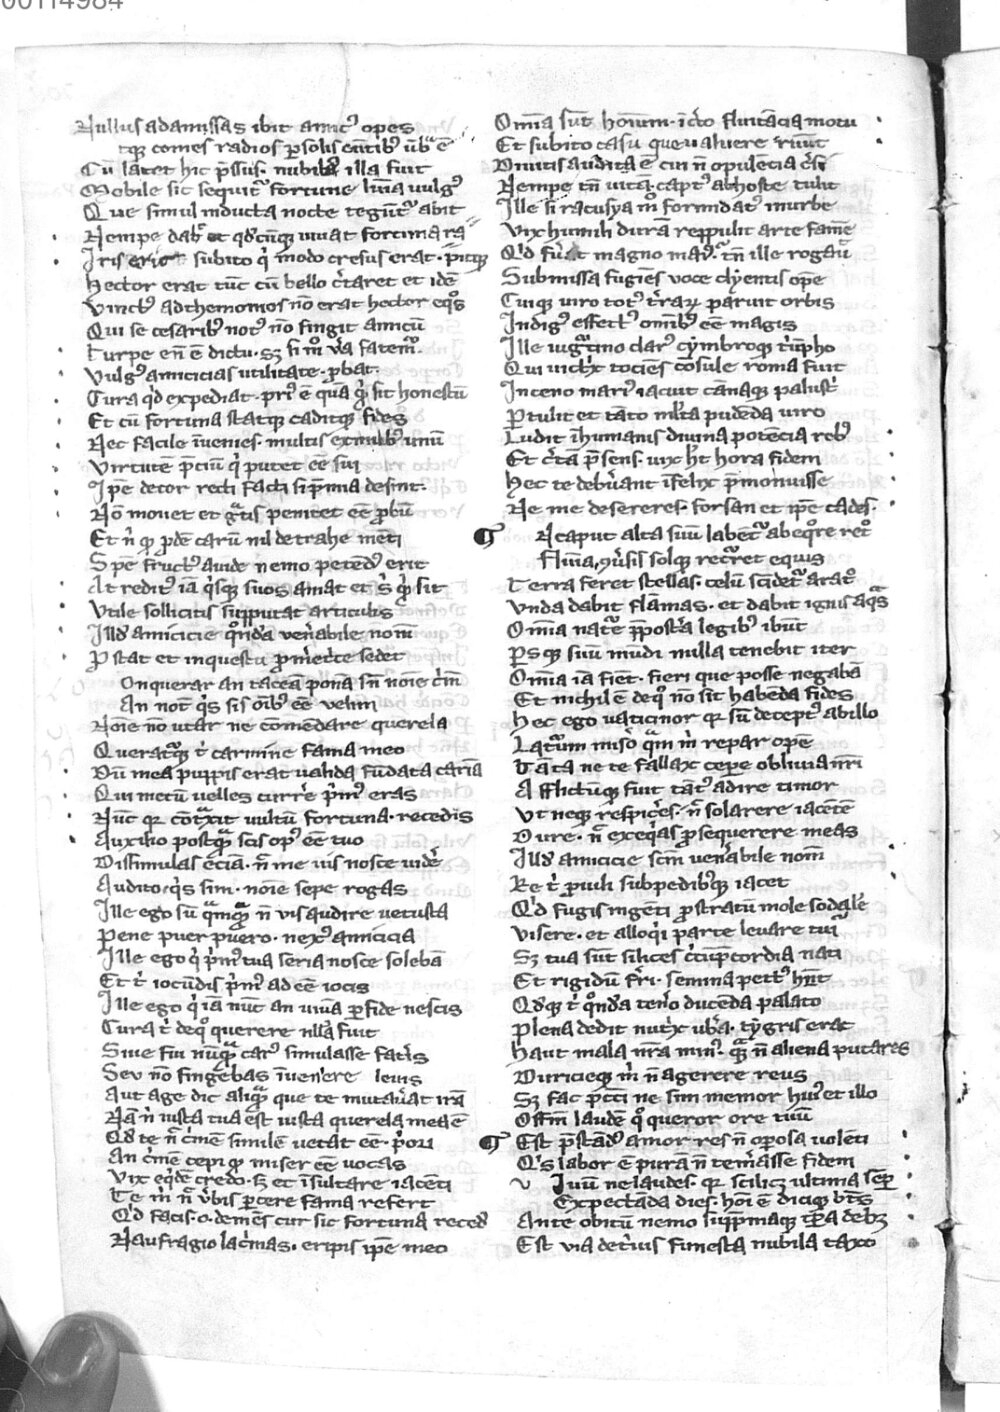 00114984
Nullus adamissas ibit amic⁹ opes
tqꝫ comes radios ꝑ solis eutib⁹ ūb͛ ē
Cū latet hic p̄ssus nubib⁹ illa fuit
Mobile sic sequit᷑ fortune lūīa uulg⁹
Que simul inducta nocte tegūt᷑ abit
Nempe dab͛ et qd̓cūqꝫ iuuat fortūa ra
Iris subito q̇ modo cresus erat
Hector erat tūc cū bello c̓taret et idē
Vinct⁹ ad themonios nō erat hector eq̊s
Qui se cesarib⁹ not⁹ nō fingit amicū
Turpe en̄ ē dictu · sꝫ si m̊ v̓a fatem᷑
Vulg⁹ amicicias utilitate ꝓbat
Cura qd̓ expediat · pri⁹ ē quā q̇ sit honestū
Et cū fortuna statqꝫ caditqꝫ fides
Nec facile īuenies · multis ex milib⁹ unū
Virtutē p̄ciū q̇ putet ēē sui
Ipē decor recti facti si p̄mia desint
Nō mouet et g̃tis penitet ēē ꝓbū
Et n̄ ꝙ ꝓdē carū nil detrahe mēti
Spē fruct⁹ auide nemo petend⁹ erit
At redit⁹ iā q̇sqꝫ suos amat et s̓ q̇ sit
Vtile sollicitis supputat articulis
Illd̓ amicicie q̊nd̓a ven̓abile nom̄
ꝓstat et in questu ꝓ m̓et̓ce sedet
Onquerar an taceā ponā sn̄ noīe c̓m̄
An not⁹ q̇s sis oīb⁹ ēē velim
Noīe nō utar ne cōmēdare querela
Querat᷑qꝫ t̓ carmine fama meo
Dū mea puppis erat ualida fūdata carīa
Qui mecū uelles curr̓e p̓m⁹ eras
Nūc qꝛ cōtxit uultū fortuna · recedis
Auxilio postq̃ scis op⁹ ēē tuo
Dissimulas eciā · n̄ me uis nosce uid̓e
Audito q̇s sim · noīe sepe rogas
Ille ego sū q̃mq̃ n̄ vis audire uetusta
Pene puer pu̓ero · nex⁹ amicicia
Ille ego q̇ p̓m⁹ tua seria nosce solebā
Et t̓ iocūdis p̓m⁹ adēē iocis
Ille ego q̇ iā nūc an uiuā ꝑfide nescis
Cura t̓ deq̊ querere nll̓a fuit
Siue fui nūq̃ car⁹ simulasse fat̓is
Seu nō fingebas īuen̓ere leuis
Aut age dic aliq̃ que te mutau̓at irā
Nā n̄ iusta tua ē̄st iusta querela mea ē
Qd̓ te n̄ c̓mē similē uetat ēē p̓ori
An c̓mē cepi ꝙ miser ēē uocas
Vix eq̓dē credo · sꝫ et īsultare iacēti
Te m̓ n̄ v̓bis ꝑcere fama refert
Qd̓ facis · o · demēs cur sic fortuna reced̓
Naufragio lac̓mas · eripis ipē meo
Omīa sūt homīm · ic̓to fluitācia motu
Et subito casu que ualuere ruūt
Diuitis audita ē cui n̄ opulēcia c̓si
Nempe tn̄ uitā · capt⁹ ab hoste tulit
Ille si racusya m̊ formidat⁹ ī urbe
Vix humili durā reppulit arte famē
Qd̓ fu̓at magno mai⁹ · tn̄ ille rogau̓
Submissa fugiēs voce clyentis opē
Cuiqꝫ uiro tot⁹ t̓raꝝ paruit orbis
Indig⁹ effect⁹ omib⁹ ēē magis
Ille iugt̃ino clar⁹ cymbroqꝫ t̓ūpho
Qui uict̓x tocies cōsule roma fuit
In ceno mari⁹ iacuit cānaqꝫ palust̓
ꝑtulit et tāto ml̓ta pudēda uiro
Ludit ī humanis diuina potēcia reb⁹
Et c̓tā p̄sens · uix hēt hora fidem
Hec te debu̓ant īfelix p̄monuisse
Ne me desereres · forsan et ipē cades
¶ N caput alta suū labēt᷑ ab eq̊re ret̊
Flūīa, 9u̓sis solqꝫ recr̃ret equis
Terra feret stellas · celū scidet᷑ arat̊
Vnda dabit flāmas · et dabit ignis aq̃s
Omīa nat᷑e p̄post̓a legib⁹ ibūt
Pꝑsqꝫ suū mūdi nulla tenebit iter
Omīa iā fiēt · fieri que posse negabā
Et nichil ē deq̊ nō sit habēda fides
Hec ego uaticinor qꝛ sū decept⁹ ab illo
Latu᷑m mis̓o q̃m m̓ repar opē
Tāta ne te fallax cepe obliuia nr̄i
Afflictūqꝫ fuit tāt⁹ adire timor
Vt neqꝫ respic̓es · n̄ solarere iacētē
Dure · n̄ exeq̓as ꝓsequerere meas
Illd̓ amicicie sc̄m ven̓abile nom̄
Re t̓ ꝓ uili sub pedib⁹qꝫ iacet
Qd̓ fugis ingēti ꝓstratū mole sodale
Visere · et alloq̓i parte leuare tui
Sꝫ tua sūt silices c̓cūp̄cordia nati
Et rigidū fr̓i · semina pett⁹ hn̄t
Qd̓qꝫ t̓ q̊nd̓a ten̓o ducēda palato
Plena dedit nut̓x ub̓a · tygris erat
Haut mala nr̄a min⁹ · q̃ n̄ aliena putares
Duricieqꝫ m̓ n̄ agerere reus
Sꝫ fac p̄cti ne sim memor hui⁹ et illo
Offm̄ laudē q̊ queror ore tuū
¶ Est p̄stād⁹ amor · res n̄ oꝑosa uolēti
Q̇s labor ē purā n̄ tem̓asse fidem
Iuū ne laudes · qꝛ scilicꝫ ultima semꝑ
Expectāda dies · hoī ē diciqꝫ bt̄s
Ante obitū nemo supp̄maqꝫ fꝑa debꝫ
Est via decliuis funesta nubila taxo